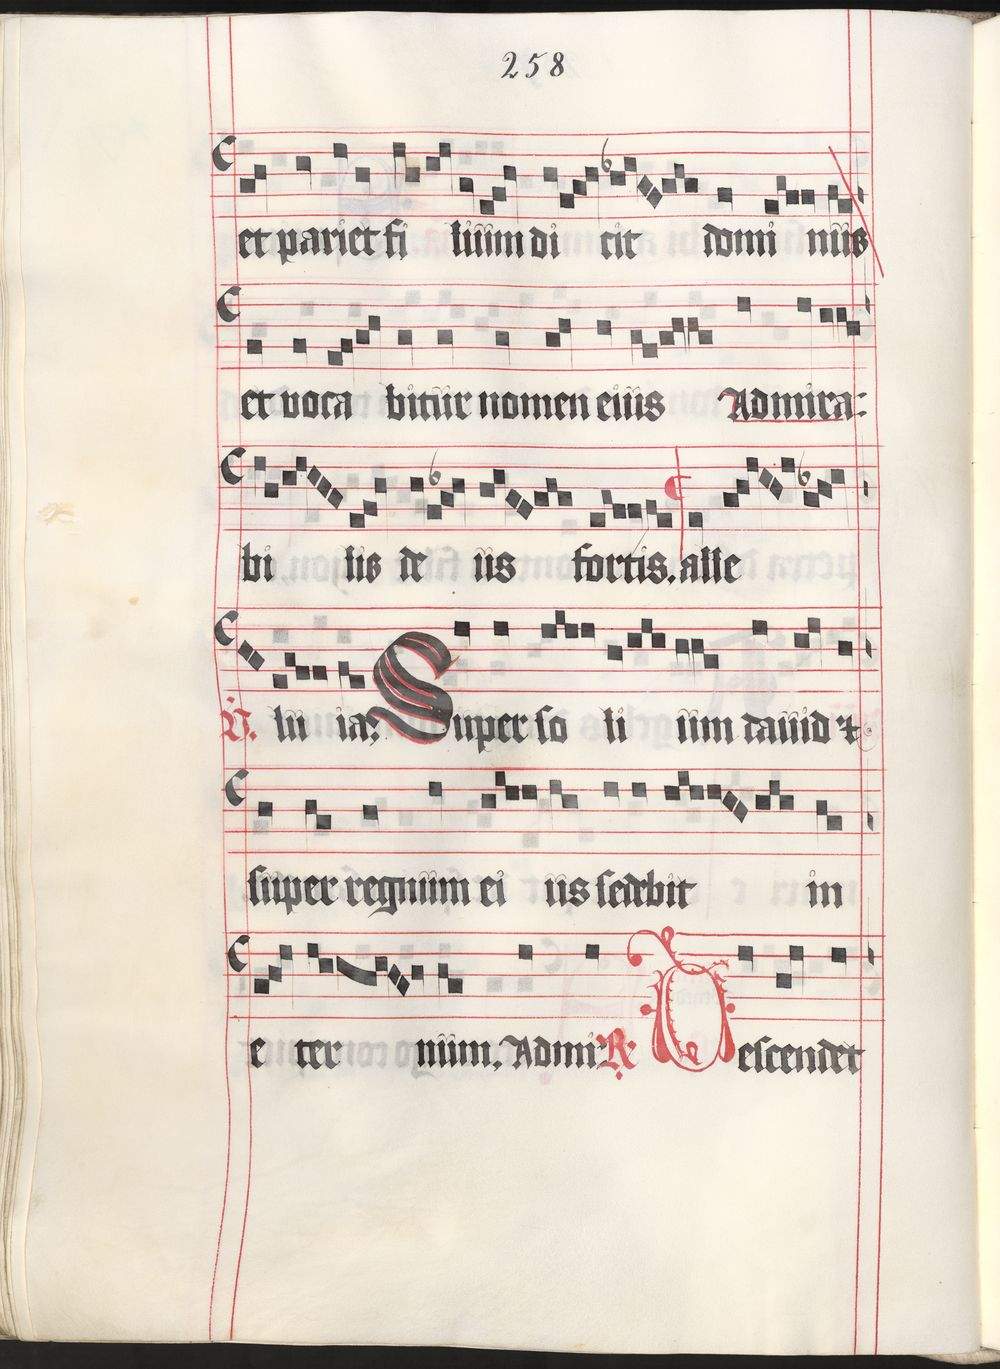 258
et pariet fi lium di cit domi nus
et voca bitur nomen eius Admira:
bi lis de us fortis. alle
V. lu ia: Super so li um dauid &
super regnum ei us sedebit in
e ter num. Admi: R. Descendet